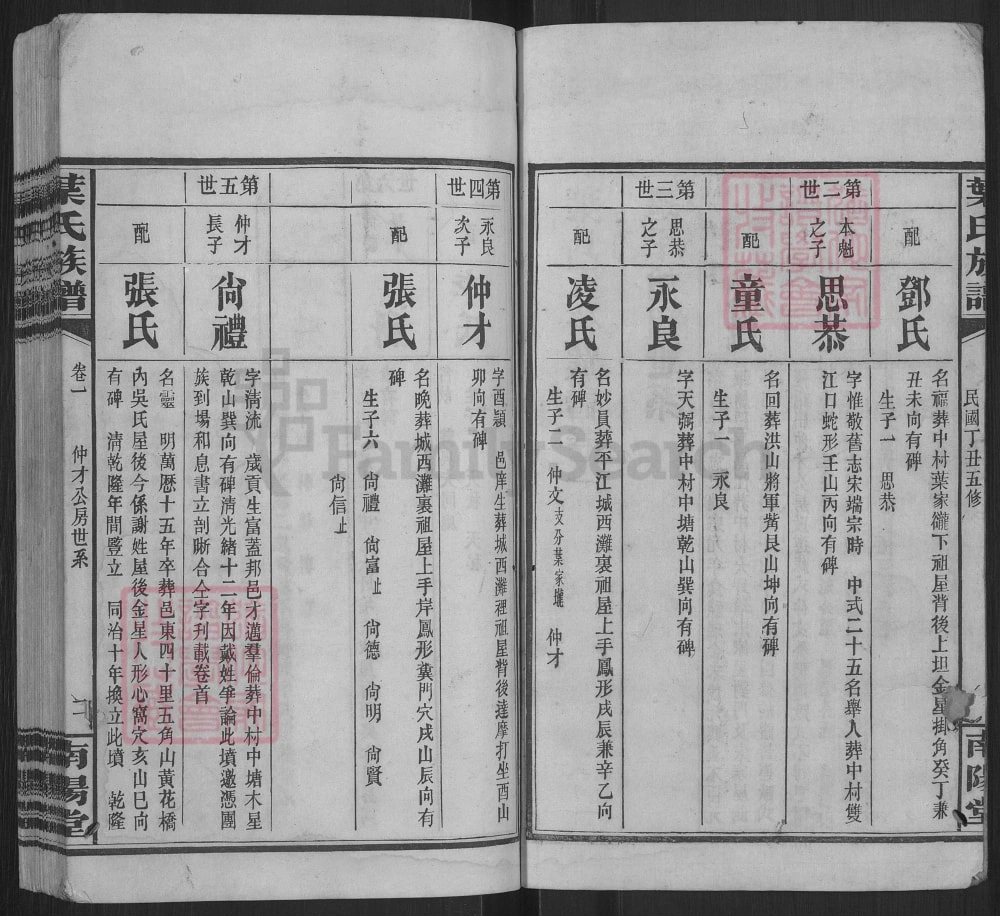 葉氏族譜
民國丁丑五修
南陽堂
配
鄧氏
名福葬中村葉家
下祖屋背後上坦金星掛角癸丁兼
丑未向有碑
生子一 思恭
第二世
本魁
之子
思恭
字惟敬舊志宋端宗時 中式二十五名舉人葬中村雙
江口蛇形壬山丙向有碑
配
童氏
名回葬洪山將軍
艮山坤向有碑
生子一 永良
第三世
思恭
之子
永良
字天弼葬中村中塘乾山巽向有碑
配
凌氏
名妙員葬平江城西灘裏祖屋上手鳳形戌辰兼辛乙向
有碑
生子二 仲文支分葉家
仲才
第四世
永良
次子
仲才
字酉穎 邑庠生葬城西灘裡祖屋背後達摩打坐酉山
卯向有碑
配
張氏
名晚葬城西灘裏祖屋上手岸鳳形糞門穴戌山辰向有
碑
生子六 尙禮 尙富止 尙德 尙明 尙賢
尙信止
第五世
仲才
長子
尙禮
字清流 歲貢生富蓋邦邑才邁羣倫葬中村中塘木星
乾山巽向有碑清光緒十二年因戴姓爭論此墳邀憑團
族到場和息書立剖晰合仝字刋載卷首
配
張氏
名靈 明萬曆十五年卒葬邑東四十里五角山黃花橋
內吳氏屋後今係謝姓屋後金星人形心窩穴亥山巳向
有碑 清乾隆年間豎立 同治十年換立此墳 乾隆
葉氏族譜
卷一
仲才公房世系
南陽堂
FamilySearch